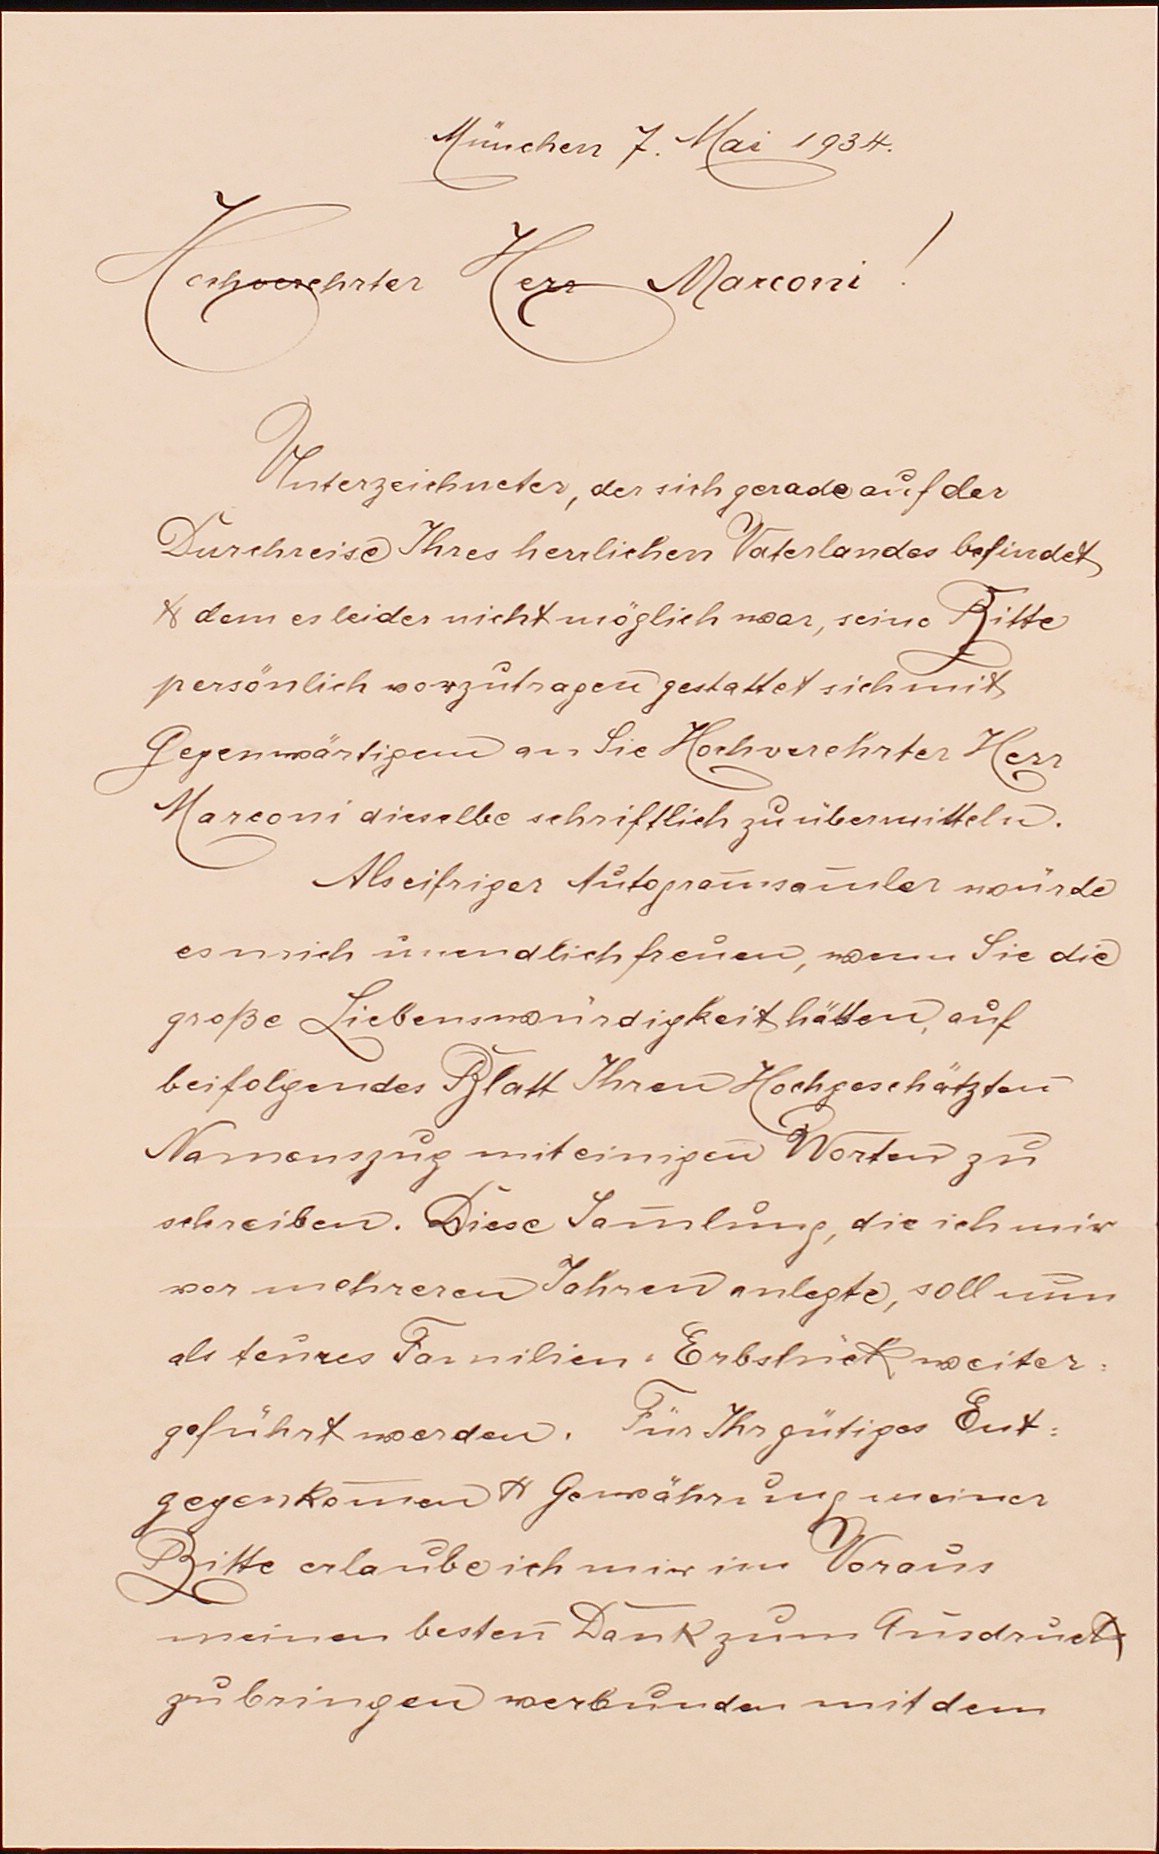 München 7. Mai 1934.
Hochverehrter Herr Marconi!
Unterzeichneter, der sich gerade auf der
Durchreise Ihres herrlichen Vaterlandes befindet
& dem es leider nicht möglich war, seine Bitte
persönlich vorzutragen gestattet sich mit
Gegenwärtigem an Sie Hochverehrter Herr
Marconi dieselbe schriftlich zu übermitteln.
Als eifriger Autogram̄sam̄ler würde
es mich unendlich freuen, wenn Sie die
große Liebenswürdigkeit hätten, auf
beifolgendes Blatt Ihren Hochgeschätzten
Namenszug mit einigen Worten zu
schreiben. Diese Sam̄lung, die ich mir
vor mehreren Jahren anlegte, soll nun
als teures Familien-Erbstück weiter=
geführt werden. Für Ihr gütiges Ent=
gegenkom̄en & Gewährung meiner
Bitte erlaube ich mir im Voraus
meinen besten Dank zum Ausdruck
zu bringen verbunden mit dem